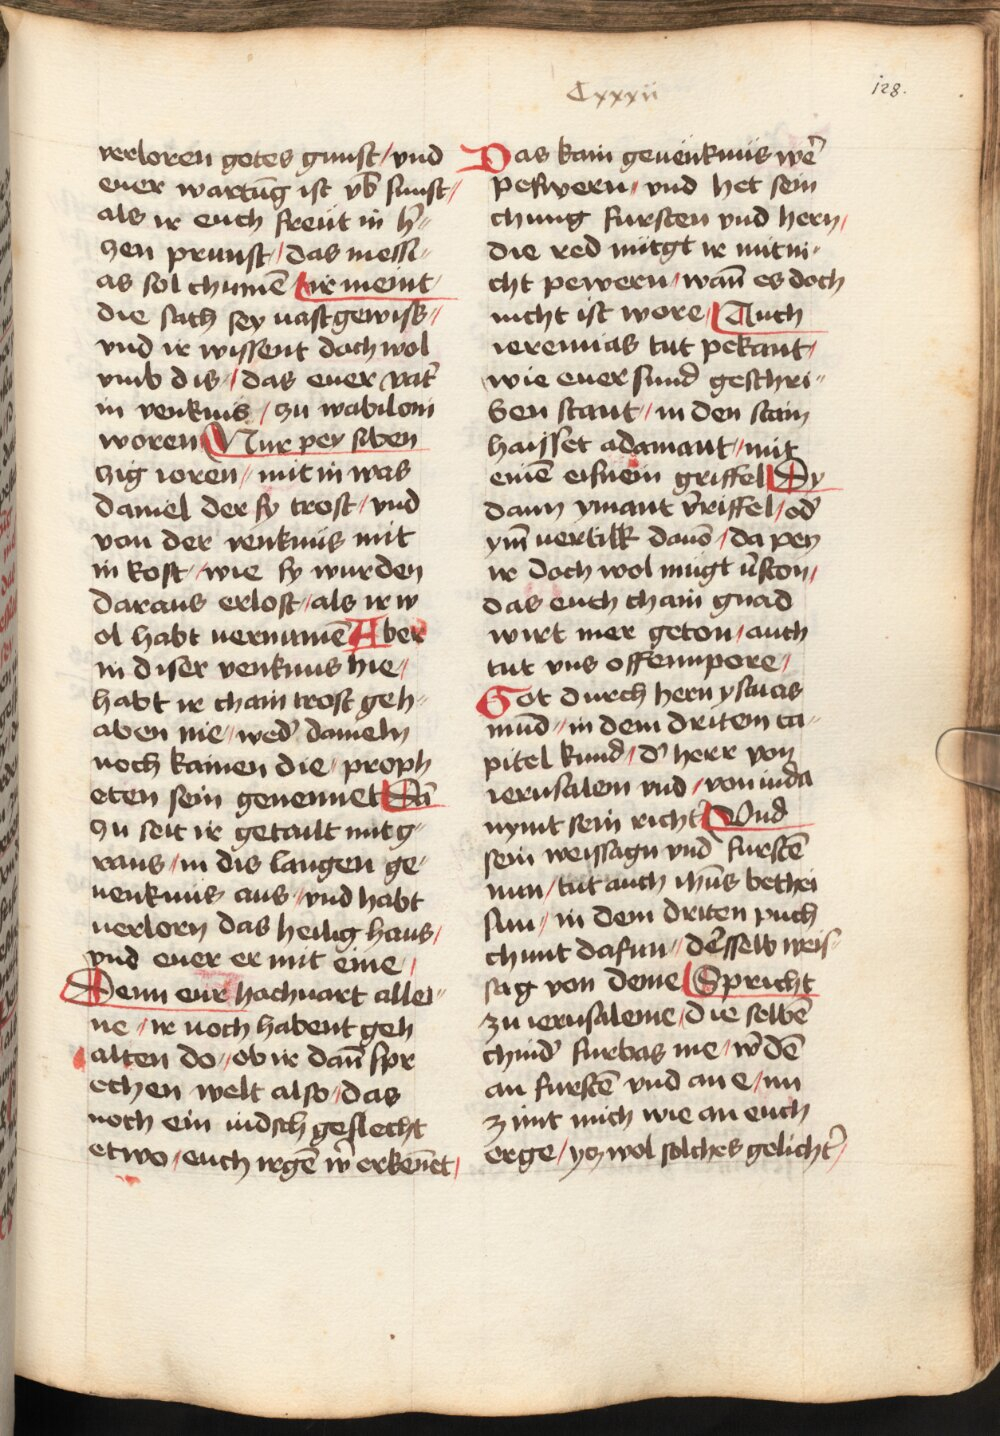 Cxxxii
128.
verloren gotes gunst / vnd
euer wartūg ist vb̄ sunst /
als ir euch freut in h̄r⸗
zen prunst / das messi⸗
as sol chumē / ir meint
die sach sey uast gewiss /
vnd ir wissent doch wol
vmb dis / das euer vat̄
in venknis / zu wabiloni
woren Nur pey siben
zig ioren / mit in was
Daniel der sy trost / vnd
von der venknus mit
in kost / wie sy wurden
daraus erlost / als ir w
ol habt uernumē Aber
in diser venknus hie /
habt ir chain trost geh⸗
aben nie / wed̄ damelŋ
noch kainen die / proph
eten sein genennet Dā
zu seit ir getailt mit g⸗
raus / in dis langen ge⸗
uenknus aus / vnd habt
uerlorn das heilig haus /
vnd euer er mit eine /
Denn eur hachuart allei⸗
ne / ir noch habent geh
alten do / ob ir dan̄ spr
echen welt also / das
noch ein iudsch geslecht
etwo / euch irgē w̄r erkennet /
Das kain geuenknus wē
peswern / vnd het sein
chung fursten vnd hern /
die red mugt ir mit ni⸗
cht pewern / wan̄ es doch
nicht ist wore / Auch
ieremias tut pekant /
wie euer sund geschri⸗
ben stant / in den stain
haisset adamant / mit
einē eisnein griffel Dy
dann ymant v̄riffel / od̄
ym̄ uertilk dauō / da pey
ir doch wol mugt v̄ston /
das euch chain gnad
wirt mer geton / auch
tut vns offennpore /
Got durch hern ysaias
mūd / in dem driten ca⸗
pitel kund / d̄ herr von
ierusalem vnd / von iuda
nymt sein richt̄ Vnd
sein weissagn vnd furstē
nun / tut auch ihūs bethei
sun / in dem driten puch
chunt dafun / d̄esselb weis⸗
sag von deme Spricht
zu ierusaleme / die selbē
chind̄ furbas me / w̄dē
an furstē vnd an e / nu
zimt mich wie an euch
erge / yz wol solches gelicht̄ /